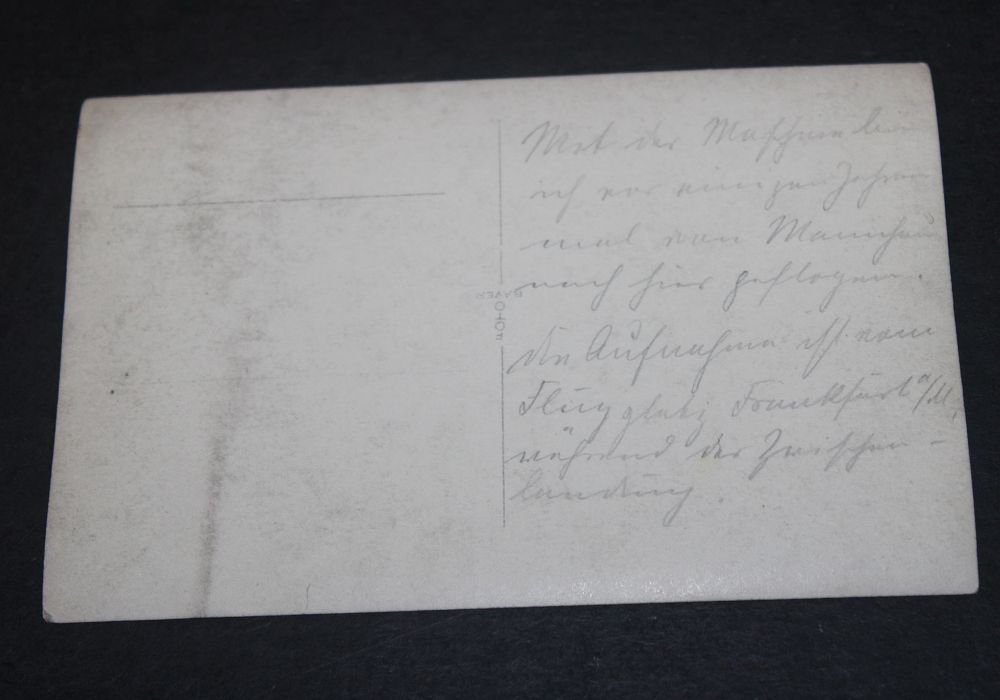 Mit der Maschine bin
ich vor einigen Jahren
mal von Mannheim
nach hier geflogen.
die Aufnahme ist vom
Flugplatz Frankfurt a/M.
während der Zwischen-
landung.
BAYER
FOTO